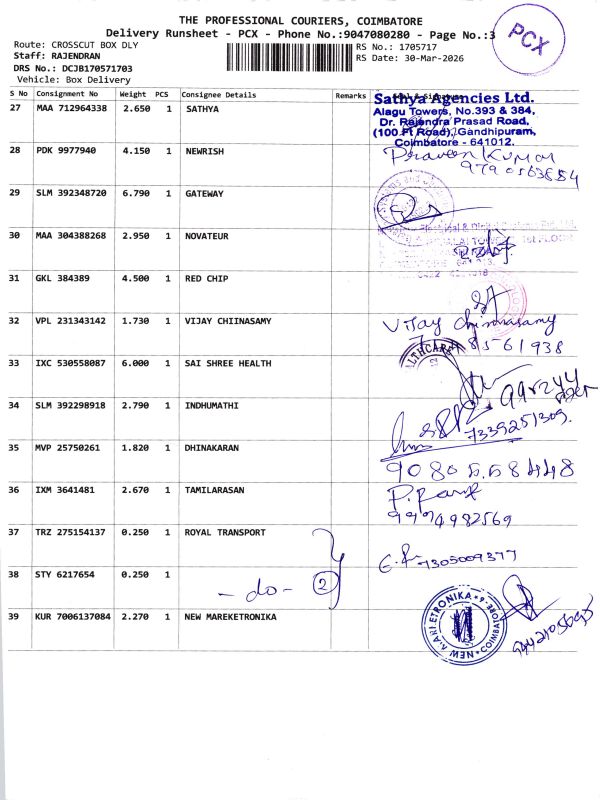 THE PROFESSIONAL COURIERS, COIMBATORE
Delivery Runsheet - PCX - Phone No.:9047080280 - Page No.:3
PCX
Route: CROSSCUT BOX DLY
RS No.: 1705717
Staff: RAJENDRAN
RS Date: 30-Mar-2026
DRS No.: DCJB170571703
Vehicle: Box Delivery
S No Consignment No Weight PCS Consignee Details Remarks
Sathya Agencies Ltd.
Alagu Towers, No.393 & 384,
Dr. Rajendra Prasad Road,
(100 Ft Road), Gandhipuram,
Coimbatore - 641012.
27 MAA 712964338 2.650 1 SATHYA
28 PDK 9977940 4.150 1 NEWRISH
Praveen Kumar
29 SLM 392348720 6.790 1 GATEWAY
30 MAA 304388268 2.950 1 NOVATEUR
31 GKL 384389 4.500 1 RED CHIP
32 VPL 231343142 1.730 1 VIJAY CHIINASAMY
Vijay Chinnasamy
33 IXC 530558087 6.000 1 SAI SHREE HEALTH
34 SLM 392298918 2.790 1 INDHUMATHI
7339251309.
35 MVP 25750261 1.820 1 DHINAKARAN
9080558448
36 IXM 3641481 2.670 1 TAMILARASAN
9994982569
37 TRZ 275154137 0.250 1 ROYAL TRANSPORT
7305009377
38 STY 6217654 0.250 1
- do - 2
39 KUR 7006137084 2.270 1 NEW MAREKETRONIKA
NEW MARLETRONIKA
COIMBATORE-9